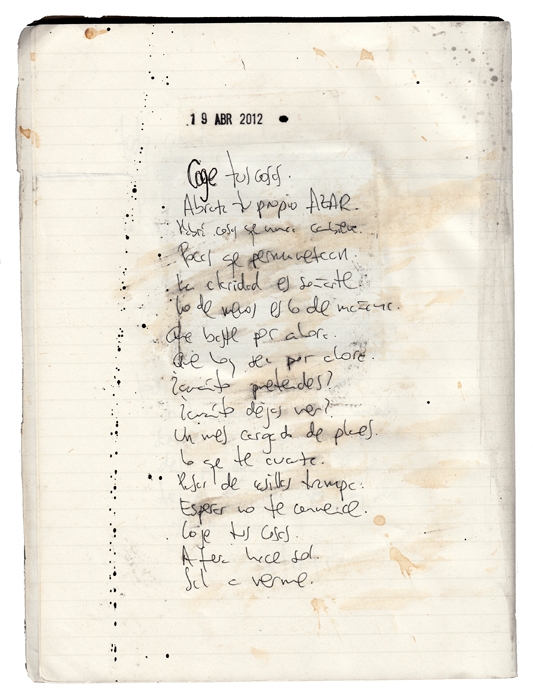 19 ABR 2012
Coge tus cosas.
Abraza tu propio AZAR.
Habrá cosas que nunca cambien.
Pocas que permanezcan.
La claridad es
Lo de menos es lo de
Que baste por ahora.
Que hoy sea por ahora.
¿cuánto pretendes?
¿cuánto dejas ver?
Un mes cargado de planes.
Lo que te cuesta.
Pasar de casillas trampa.
Esperar no te conviene.
Coje tus cosas.
Afuera hace sol.
Sal a verme.